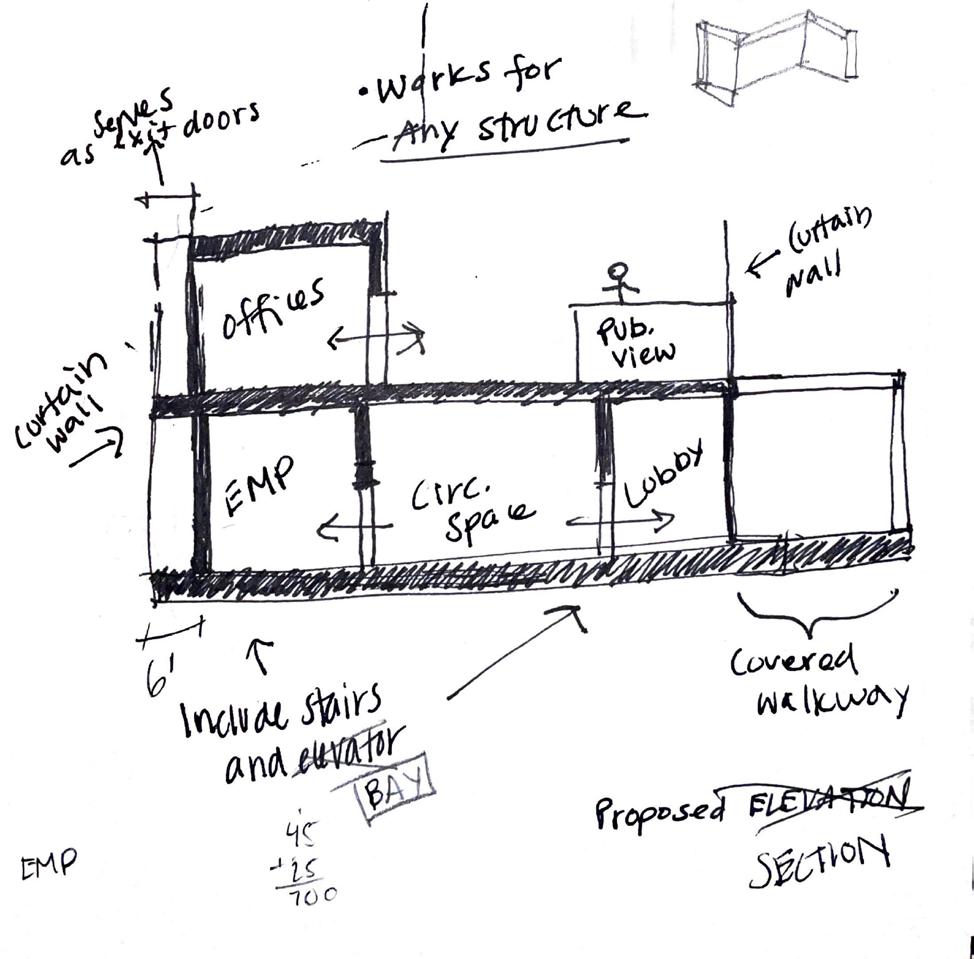 • Works for
Any structure
serves
as exit doors
Curtain
wall
Offices
Pub.
View
Curtain
wall
EMP
Circ.
Space
Lobby
6'
Include stairs
and elevator
BAY
Covered
walkway
Proposed ELEVATION
SECTION
EMP
45
+25
700